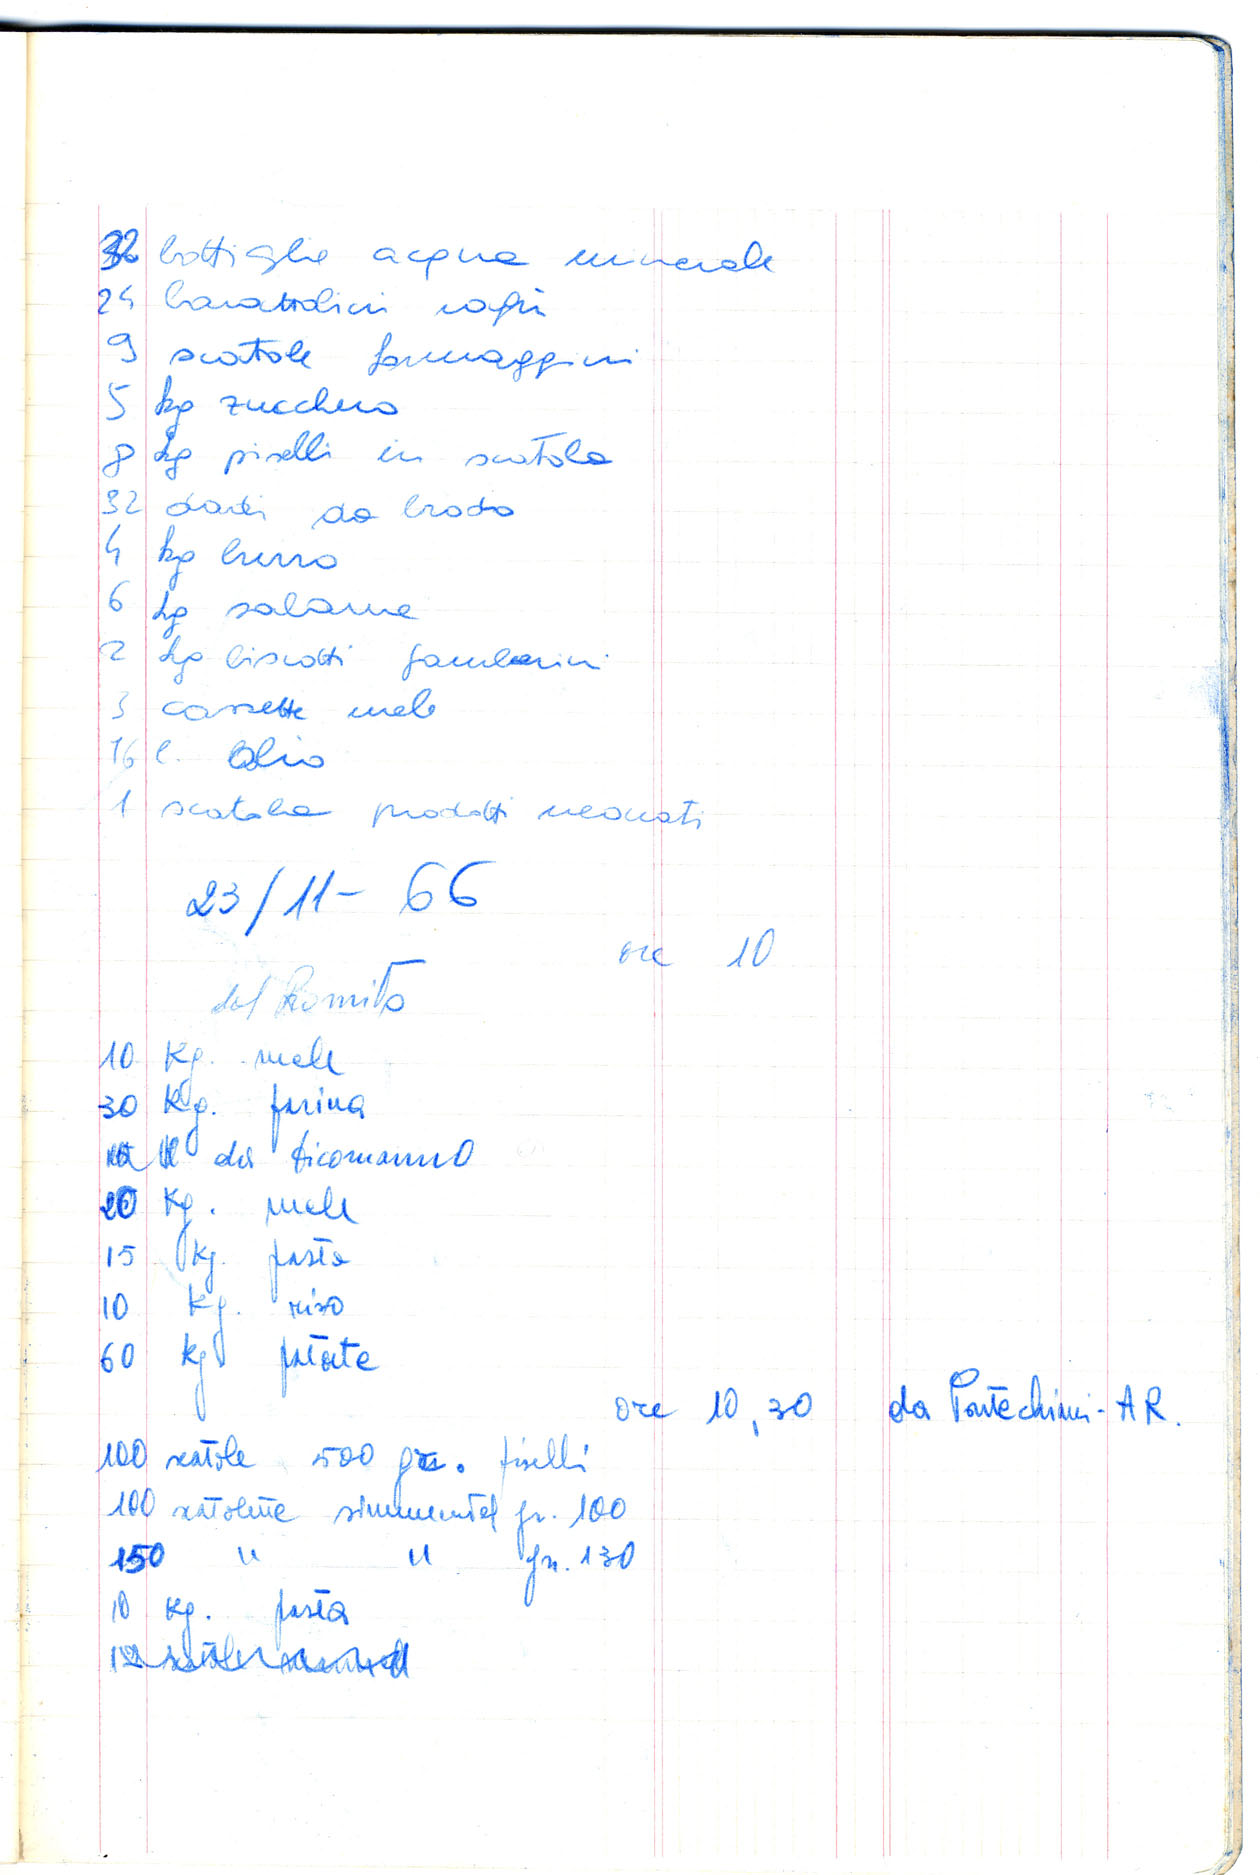 32 bottiglie acqua minerale
24 barattolini ragù
9 scatole formaggini
5 kg zucchero
8 kg piselli in scatola
32 dadi da brodo
4 kg burro
6 kg salame
2 kg biscotti gambarini
3 cassette mele
16 l. olio
1 scatola prodotti neonati
23/11- 66
ore 10
dal Romito
10 Kg. mele
30 Kg. farina
da dicomanno
20 Kg. mele
15 Kg. pasta
10 Kg. riso
60 Kg patate
ore 10,30 da Pontechimi - AR.
100 scatole 500 gr. piselli
100 scatolette simmental gr. 100
150 " " gr. 130
10 Kg. pasta
12 scatole